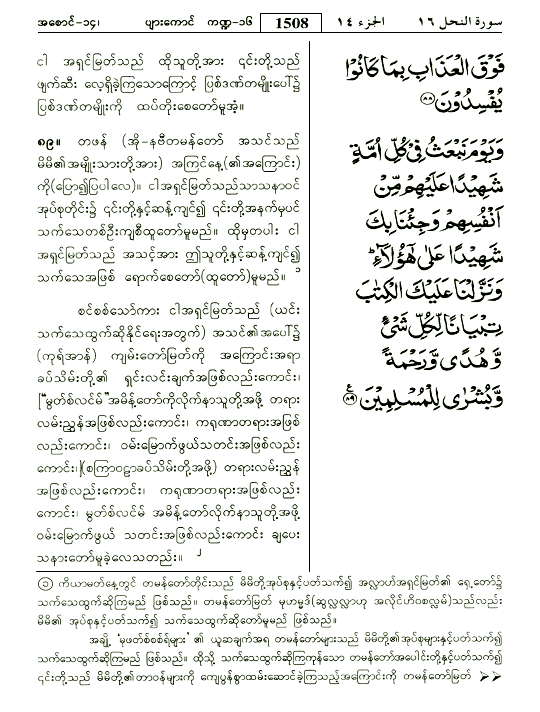 အစောင်-၁၄၊ ပျားကောင် ကဏ္ဍ-၁၆ 1508 الجزء ١٤ سورة النحل ١٦
ငါ အရှင်မြတ်သည် ထိုသူတို့အား ၎င်းတို့သည်
ဖျက်ဆီး လေ့ရှိခဲ့ကြသောကြောင့် ပြစ်ဒဏ်တမျိုးပေါ်၌
ပြစ်ဒဏ်တမျိုးကို ထပ်တိုးစေတော်မူအံ့။
၈၉။ တဖန် (အို-နဗီတမန်တော် အသင်သည်
မိမိ၏အမျိုးသားတို့အား) အကြင်နေ့(၏အကြောင်း)
ကို(ပြော၍ပြပါလေ)။ ငါအရှင်မြတ်သည်သာသနာဝင်
အုပ်စုတိုင်း၌ ၎င်းတို့နှင့်ဆန့်ကျင်၍ ၎င်းတို့အနက်မှပင်
သက်သေတစ်ဦးကျစီထူတော်မူမည်။ ထိုမှတပါး ငါ
အရှင်မြတ်သည် အသင့်အား ဤသူတို့နှင့်ဆန့်ကျင်၍
သက်သေအဖြစ် ရောက်စေတော်(ထူတော်)မူမည်။ ၁
စင်စစ်သော်ကား ငါအရှင်မြတ်သည် (ယင်း
သက်သေထွက်ဆိုနိုင်ရေးအတွက်) အသင်၏အပေါ်၌
(ကုရ်အာန်) ကျမ်းတော်မြတ်ကို အကြောင်းအရာ
ခပ်သိမ်းတို့၏ ရှင်းလင်းချက်အဖြစ်လည်းကောင်း၊
[“မွတ်စ်လင်မ်” အမိန့်တော်ကိုလိုက်နာသူတို့အဖို့ တရား
လမ်းညွှန်အဖြစ်လည်းကောင်း၊ ကရုဏာတရားအဖြစ်
လည်းကောင်း၊ ဝမ်းမြောက်ဖွယ်သတင်းအဖြစ်လည်း
ကောင်း၊](စကြာဝဠာခပ်သိမ်းတို့အဖို့) တရားလမ်းညွှန်
အဖြစ်လည်းကောင်း၊ ကရုဏာတရားအဖြစ်လည်း
ကောင်း၊ မွတ်စ်လင်မ် အမိန့်တော်လိုက်နာသူတို့အဖို့
ဝမ်းမြောက်ဖွယ် သတင်းအဖြစ်လည်းကောင်း ချပေး
သနားတော်မူခဲ့လေသတည်း။ ၂
فَوْقَ الْعَذَابِ بِمَا كَانُوا
يُفْسِدُونَ ﴿٨٨﴾
وَيَوْمَ نَبْعَثُ فِي كُلِّ أُمَّةٍ
شَهِيدًا عَلَيْهِم مِّنْ
أَنفُسِهِمْ وَجِئْنَا بِكَ
شَهِيدًا عَلَىٰ هَٰؤُلَاءِ ۚ
وَنَزَّلْنَا عَلَيْكَ الْكِتَٰبَ
تِبْيَانًا لِّكُلِّ شَيْءٍ
وَهُدًى وَرَحْمَةً
وَبُشْرَىٰ لِلْمُسْلِمِينَ ﴿٨٩﴾ ع
① ကိယာမတ်နေ့တွင် တမန်တော်တိုင်းသည် မိမိတို့အုပ်စုနှင့်ပတ်သက်၍ အလ္လာဟ်အရှင်မြတ်၏ ရှေ့တော်၌
သက်သေထွက်ဆိုကြမည် ဖြစ်သည်။ တမန်တော်မြတ် မုဟမ္မဒ်(ဆွလ္လလ္လာဟု အလိုင်ဟိဝစလ္လမ်)သည်လည်း
မိမိ၏ အုပ်စုနှင့်ပတ်သက်၍ သက်သေထွက်ဆိုတော်မူမည် ဖြစ်သည်။
အချို့ ‘မုဖတ်စ်စစ်ရ်များ’ ၏ ယူဆချက်အရ တမန်တော်များသည် မိမိတို့၏အုပ်စုများနှင့်ပတ်သက်၍
သက်သေထွက်ဆိုကြမည် ဖြစ်သည်။ ထိုသို့ သက်သေထွက်ဆိုကြကုန်သော တမန်တော်အပေါင်းတို့နှင့်ပတ်သက်၍
၎င်းတို့သည် မိမိတို့၏တာဝန်များကို ကျေပွန်စွာထမ်းဆောင်ခဲ့ကြသည့်အကြောင်းကို တမန်တော်မြတ် ➤➤